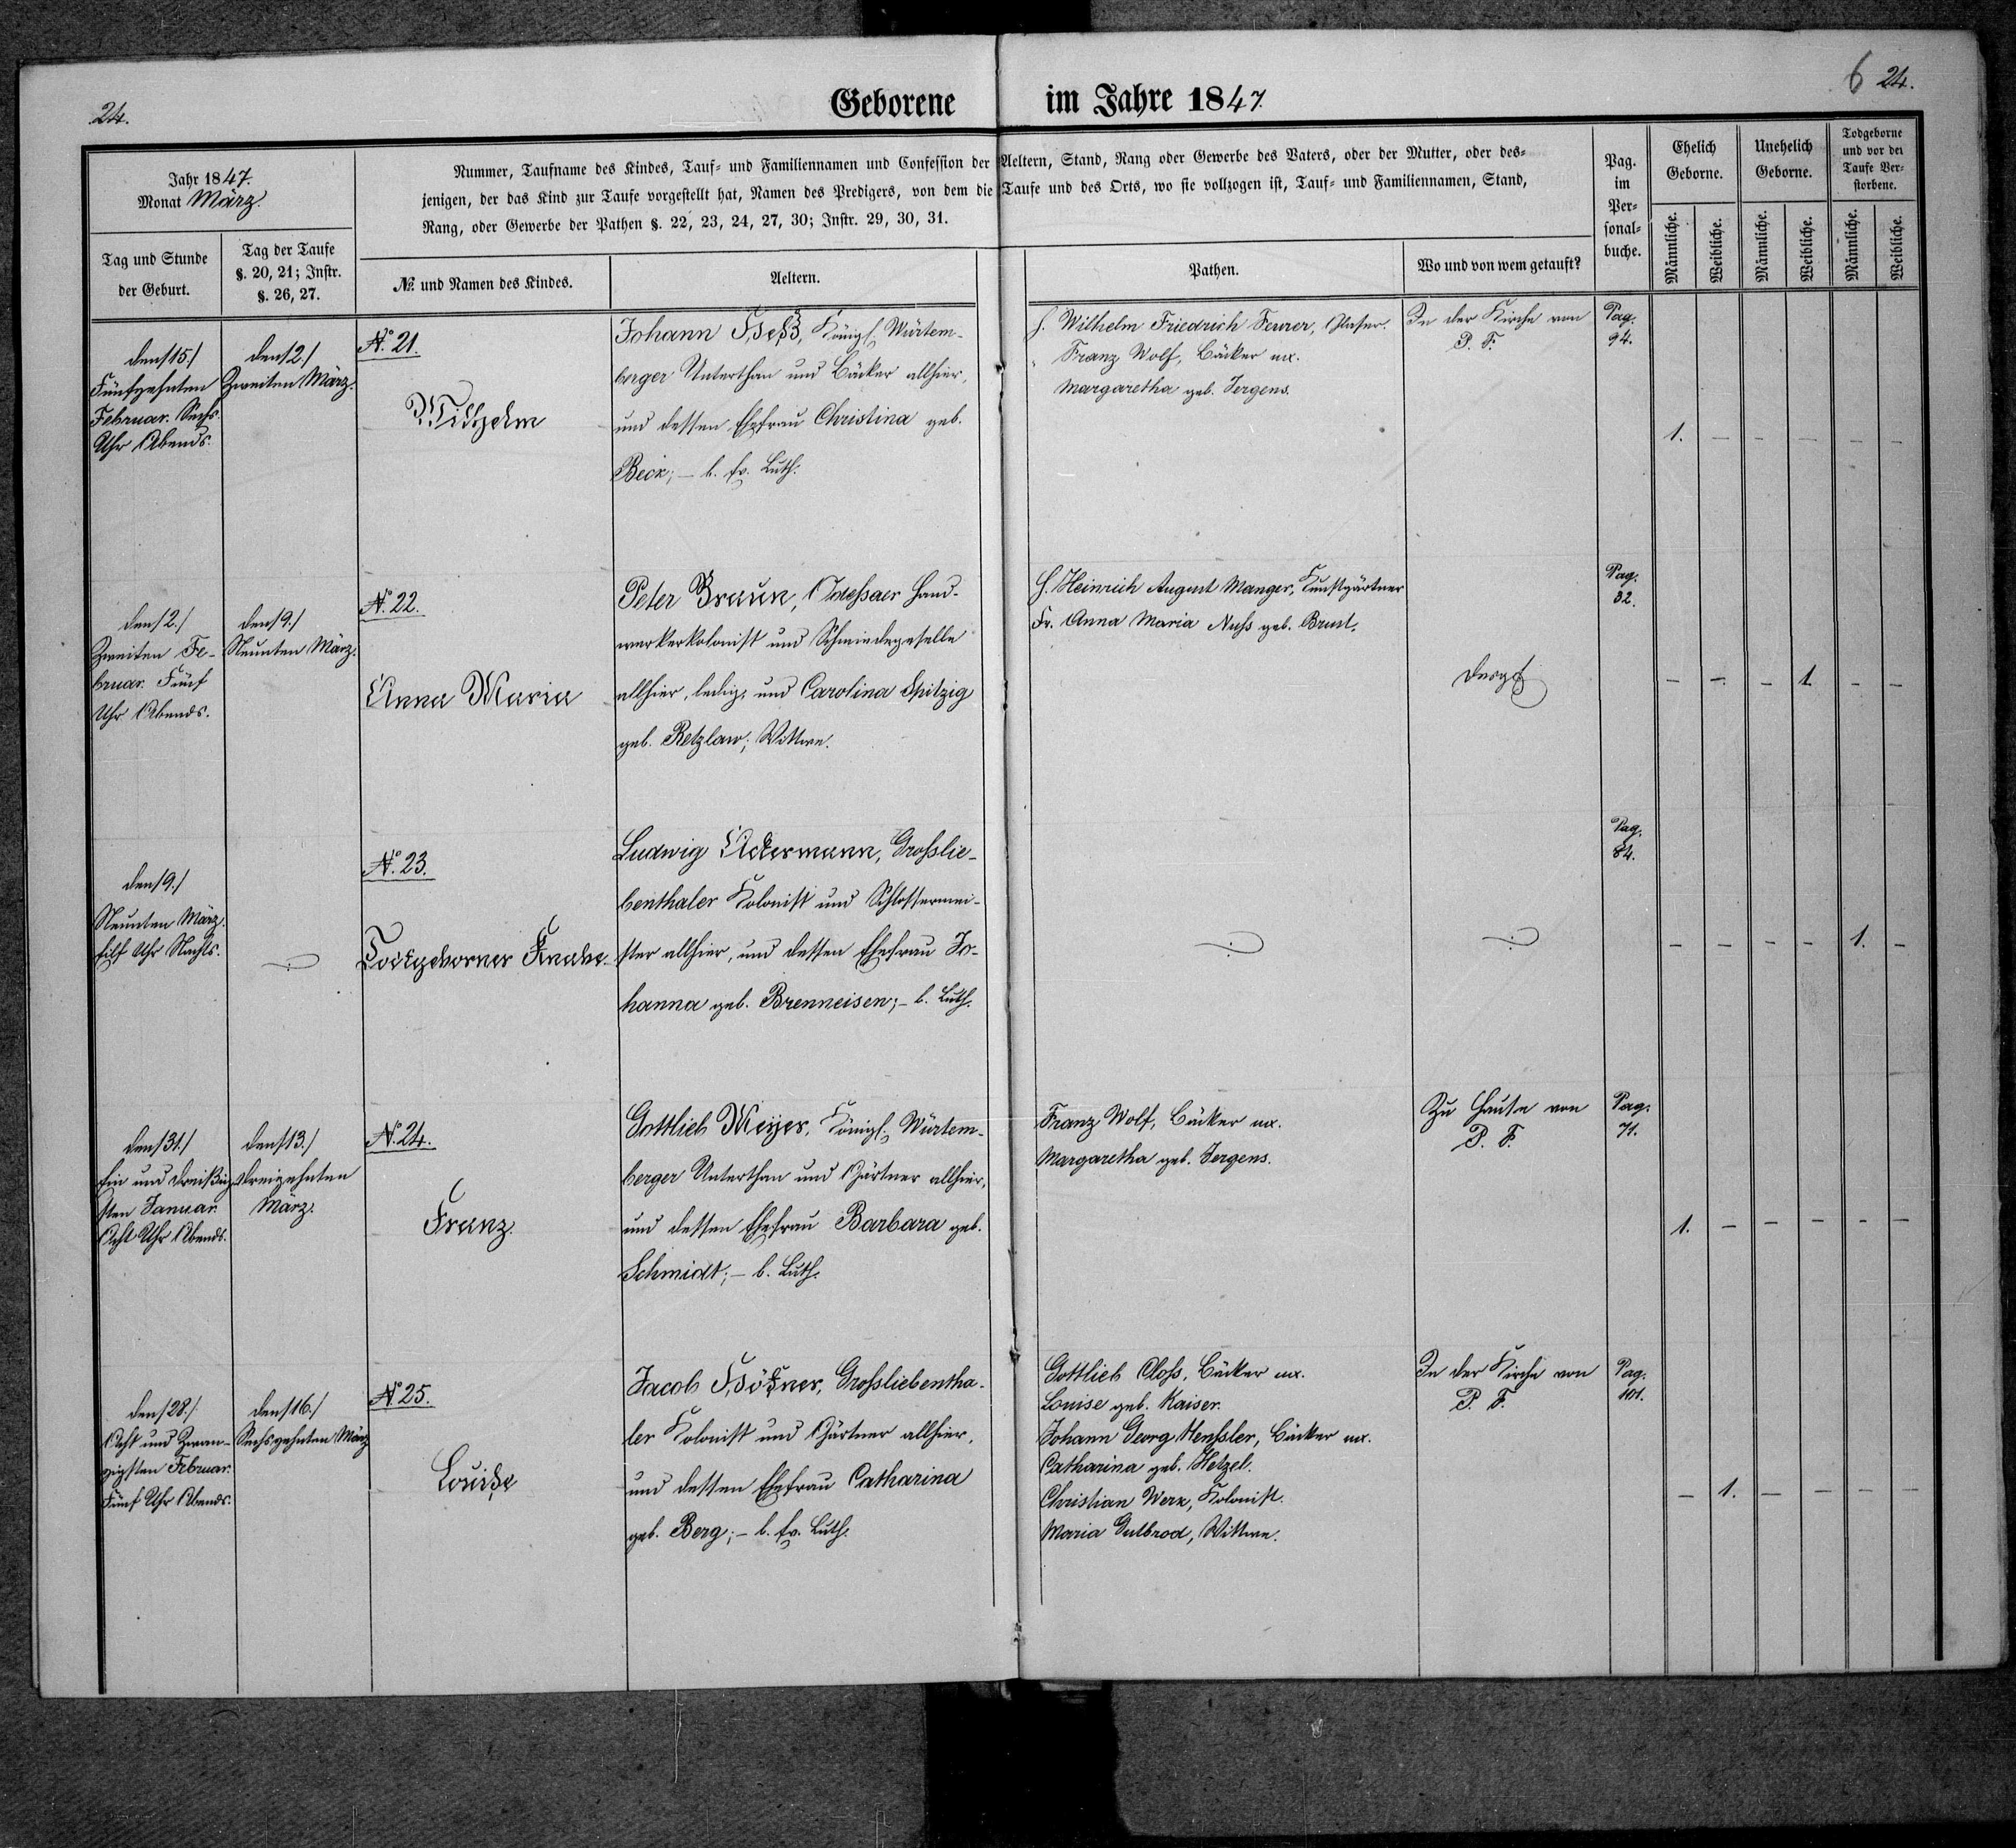 24.
Geborene im Jahre 1847.
6 24.
Jahr 1847.
Monat März.
Nummer, Taufname des Kindes, Tauf- und Familiennamen und Confession der Aeltern, Stand, Rang oder Gewerbe des Vaters, oder der Mutter, oder des-
jenigen, der das Kind zur Taufe vorgestellt hat, Namen des Predigers, von dem die Taufe und des Orts, wo sie vollzogen ist, Tauf- und Familiennamen, Stand,
Rang, oder Gewerbe der Pathen §. 22, 23, 24, 27, 30; Instr. 29, 30, 31.
Pag.
im
Per-
sonal-
buche.
Ehelich
Geborne.
Unehelich
Geborne.
Todgeborne
und vor der
Taufe Ver-
storbene.
Tag und Stunde
der Geburt.
Tag der Taufe
§. 20, 21; Instr.
§. 26, 27.
№ und Namen des Kindes.
Aeltern.
Pathen.
Wo und von wem getauft?
Männliche.
Weibliche.
Männliche.
Weibliche.
Männliche.
Weibliche.
den /15./
Fünfzehnten
Februar. Sechs
Uhr Abends.
den /2./
Zweiten März.
№ 21.
Wilhelm
Johann Königl. Würtem-
berger Unterthan und Bäcker allhier,
und dessen Ehefrau Christina geb.
Beck; – b. Ev. Luth.
H. Wilhelm Friedrich Feurer, Glaser.
" Franz Wolf, Bäcker ux.
Margaretha geb. Jergens.
In der Kirche von
P. F.
Pag.
94.
1. – – – – –
den /2./
Zweiten Fe-
bruar. Fünf
Uhr Abends.
den /9./
Neunten März.
№ 22.
Anna Maria
Peter Braun, Odessaer Hand-
werkerkolonist und Schmiedegeselle
allhier, ledig, und Carolina Spitzig
geb. Retzlaw; Wittwe.
H. Heinrich August Manger, Kunstgärtner
Fr. Anna Maria Nuss geb. Brust.
Pag.
32.
– – – 1. – –
den /9./
Neunten März.
Eilf Uhr Nachts.
№ 23.
Todtgeborner Knabe.
Ludwig Ackermann, Grosslie-
benthaler Kolonist und Schlossermei-
ster allhier, und dessen Ehefrau Jo-
hanna geb. Brenneisen; – b. Luth.
Pag.
84.
– – – – 1. –
den /31./
Ein und dreißig-
sten Januar.
Acht Uhr Abends.
den /13./
Dreizehnten
März.
№ 24.
Franz.
Gottlieb Meyer, Königl. Würtem-
berger Unterthan und Gärtner allhier,
und dessen Ehefrau Barbara geb.
Schmidt; – b. Luth.
Franz Wolf, Bäcker ux.
Margaretha geb. Jergens.
Zu Hause von
P. F.
Pag.
71.
1. – – – – –
den /28./
Acht und Zwan-
zigsten Februar.
Fünf Uhr Abends.
den /16./
Sechszehnten März
№ 25.
Louise
Jacob Grossliebentha-
ler Kolonist und Gärtner allhier,
und dessen Ehefrau Catharina
geb. Berg; – b. Ev. Luth.
Gottlieb Closs, Bäcker ux.
Louise geb. Kaiser.
Johann Georg Henssler, Bäcker ux.
Catharina geb. Hetzel.
Christian Werk, Kolonist.
Maria Gutbrod, Wittwe.
In der Kirche von
P. F.
Pag.
101.
– 1. – – – –